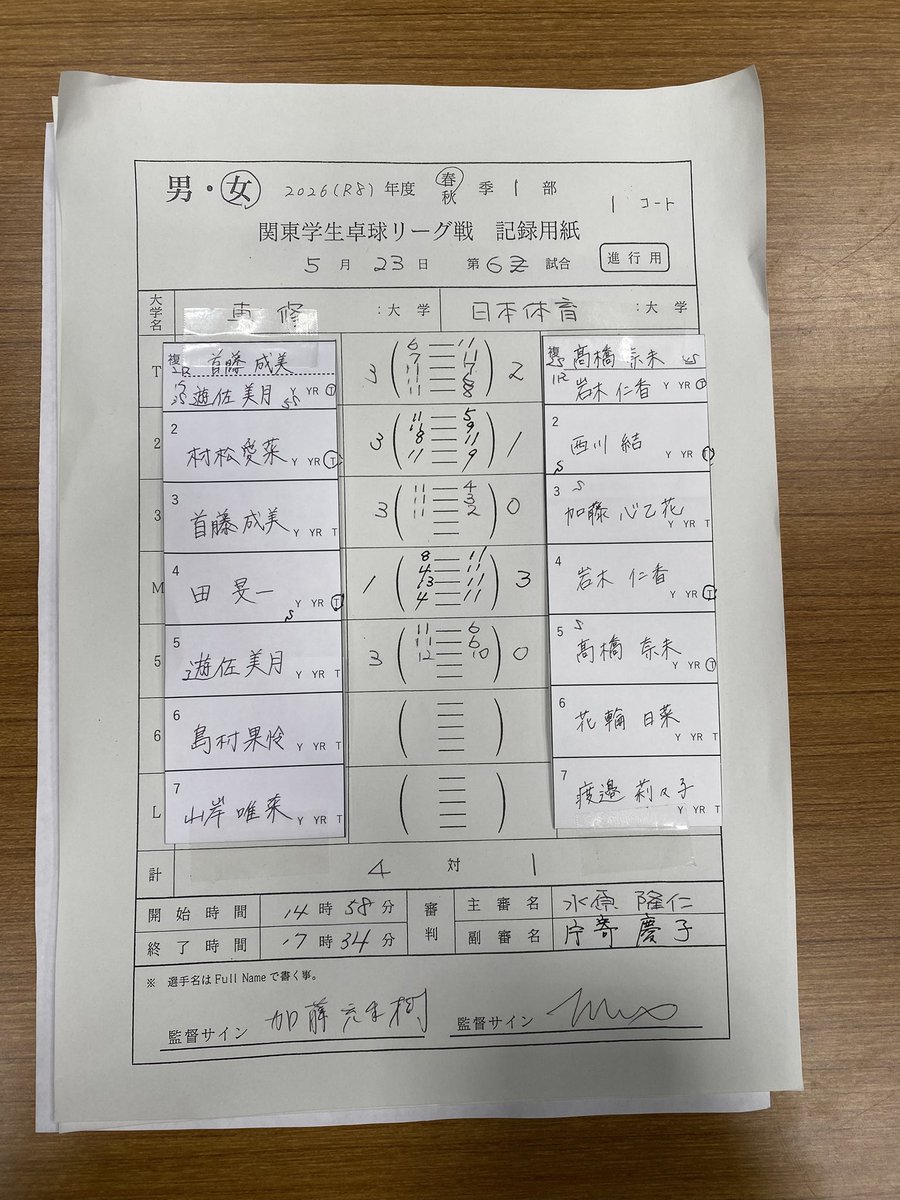 男・女 2026(R8)年度 春秋 季 1 部
1 コート
関東学生卓球リーグ戦 記録用紙
5 月 23 日 第 6 試合 進行用
大学名 専修 :大学 日本体育 :大学
T 複 首藤 成美 遊佐 美月 Y YR T 3 ( 6―11 7―11 11―7 11―8 ) 2 複 髙橋 奈未 岩木 仁香 Y YR T
2 2 村松愛菜 Y YR T 3 ( 11―5 11―9 8―11 11―9 ) 1 2 西川 結 Y YR T
3 3 首藤 成美 Y YR T 3 ( 11―4 11―3 11―2 ) 0 3 加藤 心乙花 Y YR T
M 4 田 旻一 Y YR T 1 ( 8―11 4―11 13―11 4―11 ) 3 4 岩木 仁香 Y YR T
5 5 遊佐 美月 Y YR T 3 ( 11―6 11―6 12―10 ) 0 5 髙橋 奈未 Y YR T
6 6 島村果怜 Y YR T ( ) 6 花輪 日菜 Y YR T
L 7 山岸 唯菜 Y YR T ( ) 7 渡邉 莉々子 Y YR T
計 4 対 1
開始時間 14 時 58 分 審判 主審名 水原 隆仁
終了時間 17 時 34 分 副審名 片寄 慶子
※ 選手名は Full Name で書く事。
監督サイン 加藤 樹 監督サイン